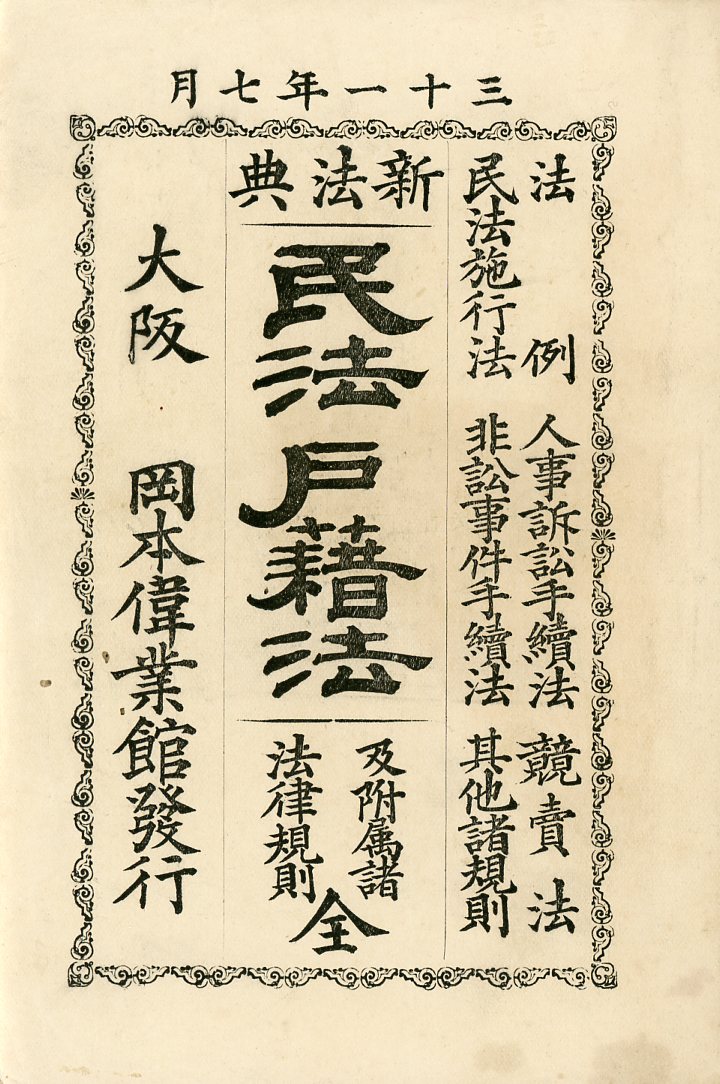 三十一年七月
法例 人事訴訟手續法 競賣法
民法施行法 非訟事件手續法 其他諸規則
新法典
民法戸藉法
及附属諸
法律規則
全
大阪 岡本偉業館發行